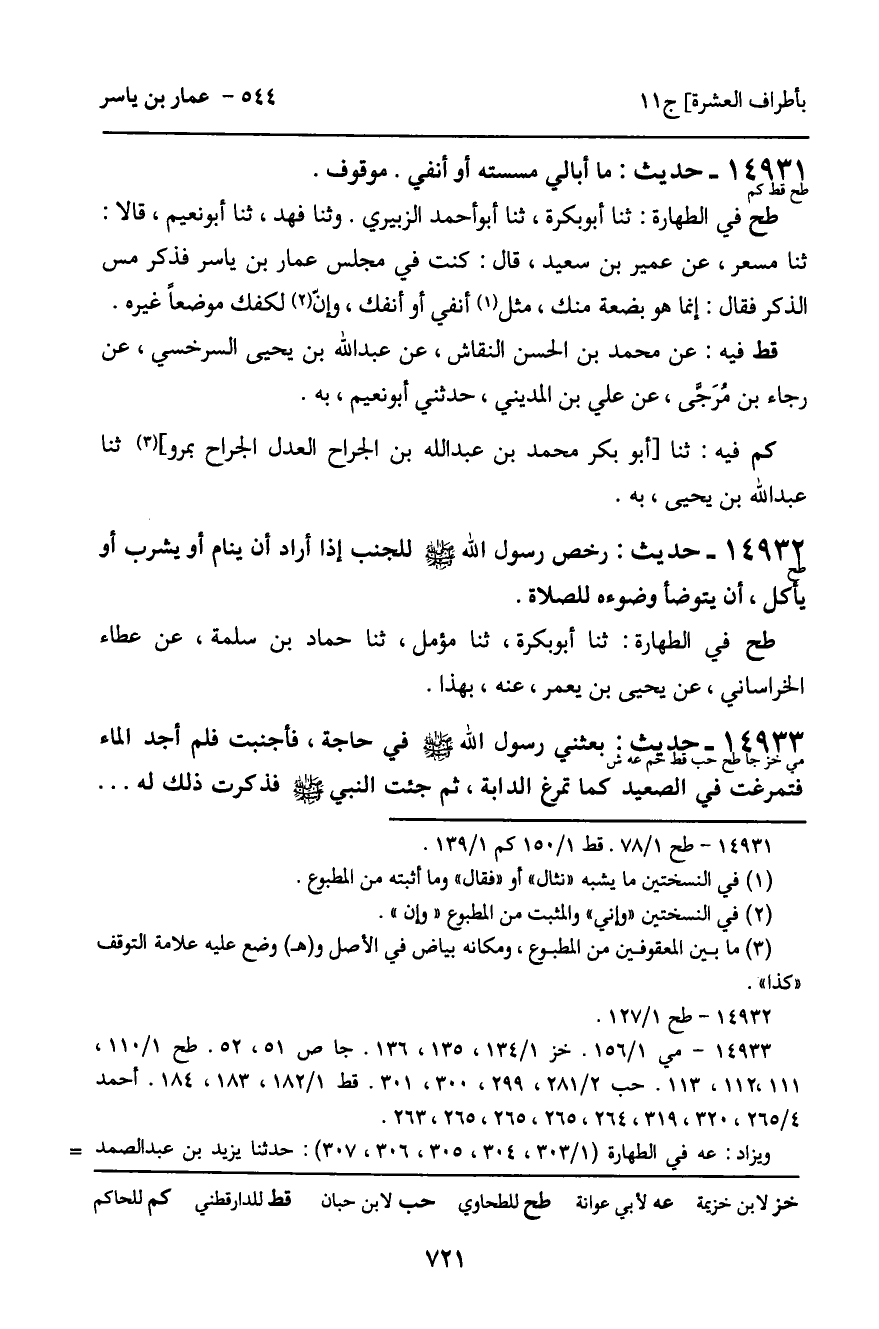 بأطراف العشرة] ج١١
٥٤٤ - عمار بن ياسر
١٤٩٣١ - حديث : ما أبالي مسسته أو أنفي . موقوف .
طح قط كم
طح في الطهارة : ثنا أبوبكرة ، ثنا أبوأحمد الزبيري . وثنا فهد ، ثنا أبونعيم ، قالا :
ثنا مسعر ، عن عمير بن سعيد ، قال : كنت في مجلس عمار بن ياسر فذكر مس
الذكر فقال : إنما هو بضعة منك ، مثل(١) أنفي أو أنفك ، وإنّ(٢) لكفك موضعاً غيره .
قط فيه : عن محمد بن الحسن النقاش ، عن عبدالله بن يحيى السرخسي ، عن
رجاء بن مُرَجَّى ، عن علي بن المديني ، حدثني أبونعيم ، به .
كم فيه : ثنا [أبو بكر محمد بن عبدالله بن الجراح العدل الجراح بمرو](٣) ثنا
عبدالله بن يحيى ، به .
١٤٩٣٢ - حديث : رخص رسول الله ﷺ للجنب إذا أراد أن ينام أو يشرب أو
طح
يأكل ، أن يتوضأ وضوءه للصلاة .
طح في الطهارة : ثنا أبوبكرة ، ثنا مؤمل ، ثنا حماد بن سلمة ، عن عطاء
الخراساني ، عن يحيى بن يعمر ، عنه ، بهذا .
١٤٩٣٣ - حديث : بعثني رسول الله ﷺ في حاجة ، فأجنبت فلم أجد الماء
مي خز جا طح حب قط حم عه ش
فتمرغت في الصعيد كما تمرغ الدابة ، ثم جئت النبي ﷺ فذكرت ذلك له ...
١٤٩٣١ - طح ٧٨/١ . قط ١٥٠/١ كم ١٣٩/١ .
(١) في النسختين ما يشبه «نثال» أو «فقال» وما أثبته من المطبوع .
(٢) في النسختين «وإني» والمثبت من المطبوع « وإن » .
(٣) ما بين المعقوفين من المطبوع ، ومكانه بياض في الأصل و(هـ) وضع عليه علامة التوقف
«كذا» .
١٤٩٣٢ - طح ١٢٧/١ .
١٤٩٣٣ - مي ١٥٦/١ . خز ١٣٤/١ ، ١٣٥ ، ١٣٦ . جا ص ٥١ ، ٥٢ . طح ١١٠/١ ،
١١١ ،١١٢ ، ١١٣ . حب ٢٨١/٢ ، ٢٩٩ ، ٣٠٠ ، ٣٠١ . قط ١٨٢/١ ، ١٨٣ ، ١٨٤ . أحمد
٢٦٥/٤ ، ٣٢٠ ، ٣١٩ ، ٢٦٤ ، ٢٦٥ ، ٢٦٥ ، ٢٦٥ ، ٢٦٣ .
ويزاد : عه في الطهارة (٣٠٣/١ ، ٣٠٤ ، ٣٠٥ ، ٣٠٦ ، ٣٠٧) : حدثنا يزيد بن عبدالصمد =
خز لابن خزيمة عه لأبي عوانة طح للطحاوي حب لابن حبان قط للدارقطني كم للحاكم
٧٢١